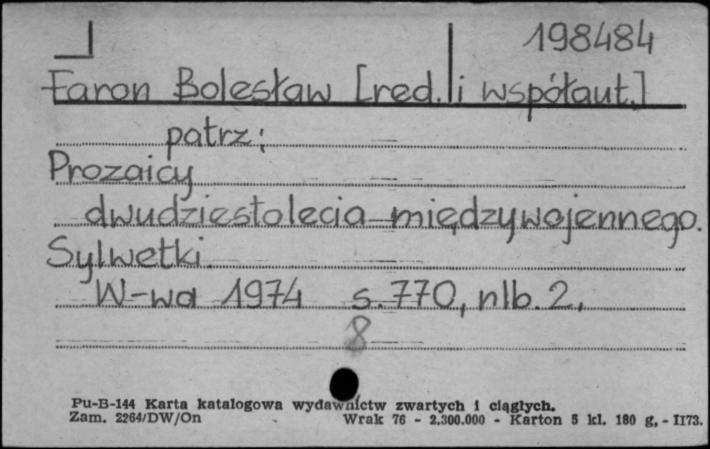 198484
Faron Bolesław [red. i współaut.]
patrz:
Prozaicy
dwudziestolecia międzywojennego.
Sylwetki.
W-wa 1974 s. 770, nlb. 2,
8
Pu-B-144 Karta katalogowa wydawnictw zwartych i ciągłych.
Zam. 2264/DW/On Wrak 76 - 2.300.000 - Karton 5 kl. 180 g, - II73.